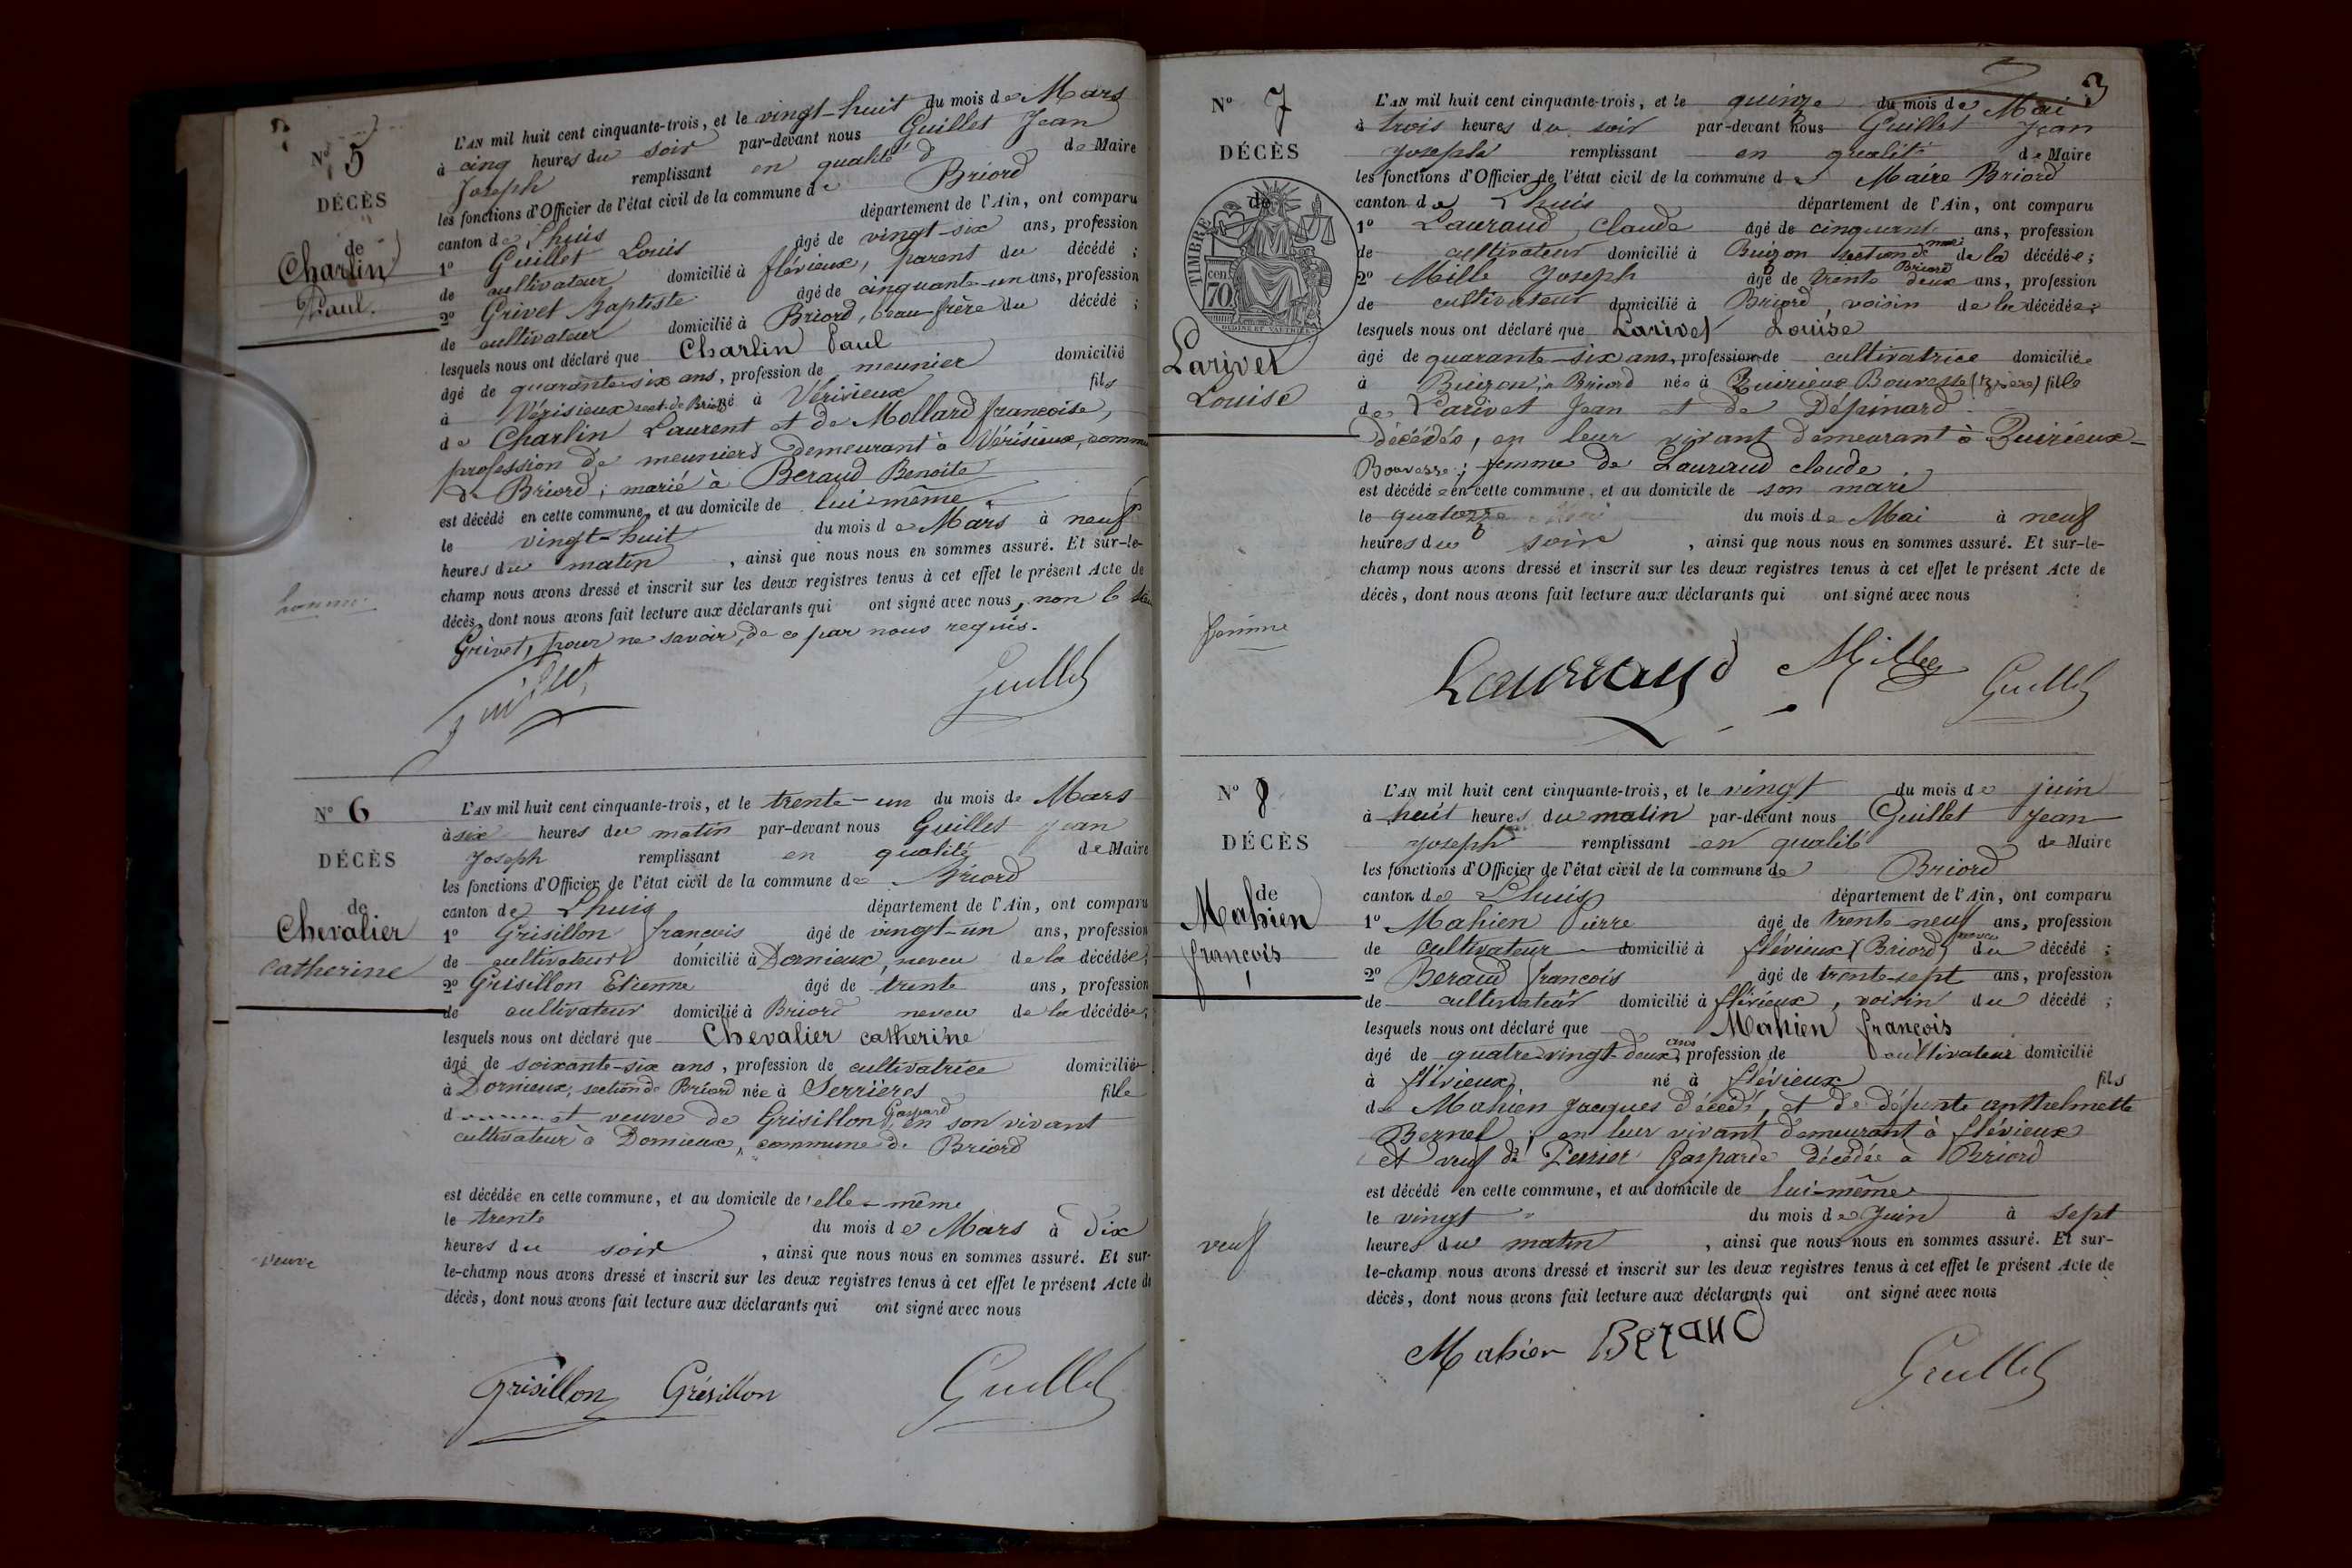 N° 5
DÉCÈS
de
Charlin
Paul.
homme
L'AN mil huit cent cinquante-trois, et le vingt-huit du mois de Mars
à cinq heures du soir par-devant nous Guillet Jean
Joseph remplissant en qualité d de Maire
les fonctions d'Officier de l'état civil de la commune de Briord
canton de Lhuis département de l'Ain, ont comparu
1° Guillet Louis âgé de vingt-six ans, profession
de cultivateur domicilié à flévieux, parent du décédé ;
2° Grivet Baptiste âgé de cinquante-un ans, profession
de cultivateur domicilié à Briord, beau frère du décédé ;
lesquels nous ont déclaré que Charlin Paul
âgé de quarante-six ans, profession de meunier domicilié
à Vérisieux sect. de Briord né à Vérisieux fils
de Charlin Laurent et de Mollard françoise,
profession de meuniers demeurant à Vérisieux, comme
de Briord ; marié à Beraud Benoite
est décédé en cette commune, et au domicile de lui-même
le vingt-huit du mois de Mars à neuf
heures du matin , ainsi que nous nous en sommes assuré. Et sur-le-
champ nous avons dressé et inscrit sur les deux registres tenus à cet effet le présent Acte de
décès, dont nous avons fait lecture aux déclarants qui ont signé avec nous, non le
Grivet, pour ne savoir, de ce par nous requis.
Guillet Guillet
N° 6
DÉCÈS
de
Chevalier
catherine
veuve
L'AN mil huit cent cinquante-trois, et le trente-un du mois de Mars
à six heures du matin par-devant nous Guillet Jean
Joseph remplissant en qualité de Maire
les fonctions d'Officier de l'état civil de la commune de Briord
canton de Lhuis département de l'Ain, ont comparu
1° Grisillon françois âgé de vingt-un ans, profession
de cultivateur domicilié à Dornieux, neveu de la décédée ;
2° Grisillon Etienne âgé de trente ans, profession
de cultivateur domicilié à Briord neveu de la décédée ;
lesquels nous ont déclaré que Chevalier catherine
âgé de soixante-six ans, profession de cultivatrice domiciliée
à Dornieux, section de Briord née à Serrières fille
d et veuve de Grisillon Gaspard en son vivant
cultivateur à Dornieux, commune de Briord
est décédée en cette commune, et au domicile de elle-même
le trente du mois de Mars à dix
heures du soir , ainsi que nous nous en sommes assuré. Et sur-
le-champ nous avons dressé et inscrit sur les deux registres tenus à cet effet le présent Acte de
décès, dont nous avons fait lecture aux déclarants qui ont signé avec nous
Grisillon Grésillon Guillet
3
N° 7
DÉCÈS
de
TIMBRE
cen
70
Larivet
Louise
femme
L'AN mil huit cent cinquante-trois, et le quinze du mois de Mai
à trois heures du soir par-devant nous Guillet Jean
Joseph remplissant en qualité de Maire
les fonctions d'Officier de l'état civil de la commune de Maire Briord
canton de Lhuis département de l'Ain, ont comparu
1° Lauraud Claude âgé de cinquante ans, profession
de cultivateur domicilié à Buizon section de Briord mari de la décédée ;
2° Mille Joseph âgé de trente deux ans, profession
de cultivateur domicilié à Briord, voisin de la décédée ;
lesquels nous ont déclaré que Larivet Louise
âgé de quarante-six ans, profession de cultivatrice domiciliée
à Buizon, à Briord née à Quirieux Bouvesse (Isère) fille
de Larivet Jean et de Dépinard
décédés, en leur vivant demeurant à Quirieux-
Bouvesse ; femme de Lauraud claude
est décédée en cette commune, et au domicile de son mari
le quatorze du mois de Mai à neuf
heures du soir , ainsi que nous nous en sommes assuré. Et sur-le-
champ nous avons dressé et inscrit sur les deux registres tenus à cet effet le présent Acte de
décès, dont nous avons fait lecture aux déclarants qui ont signé avec nous
Laurraud Mille Guillet
N° 8
DÉCÈS
de
Mahien
françois
veuf
L'AN mil huit cent cinquante-trois, et le vingt du mois de juin
à huit heures du matin par-devant nous Guillet Jean
Joseph remplissant en qualité de Maire
les fonctions d'Officier de l'état civil de la commune de Briord
canton de Lhuis département de l'Ain, ont comparu
1° Mahien Pierre âgé de trente-neuf ans, profession
de cultivateur domicilié à flévieux (Briord) neveu du décédé ;
2° Beraud françois âgé de trente-sept ans, profession
de cultivateur domicilié à flévieux, voisin du décédé ;
lesquels nous ont déclaré que Mahien françois
âgé de quatre vingt-deux ans, profession de cultivateur domicilié
à flévieux né à flévieux fils
de Mahien Jacques décédé, et de défunte anthelmette
Bernet ; en leur vivant demeurant à flévieux
et veuf de gasparde décédée à Briord
est décédé en cette commune, et au domicile de lui-même
le vingt du mois de Juin à sept
heures du matin , ainsi que nous nous en sommes assuré. Et sur-
le-champ nous avons dressé et inscrit sur les deux registres tenus à cet effet le présent Acte de
décès, dont nous avons fait lecture aux déclarants qui ont signé avec nous
Mahien Beraud Guillet